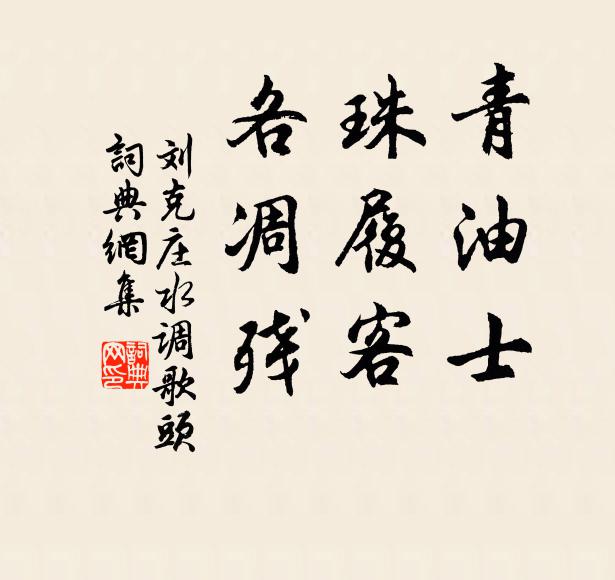 青油士
珠履客
各凋残
刘克庄水调歌頭
詞典網集
詞典
网印